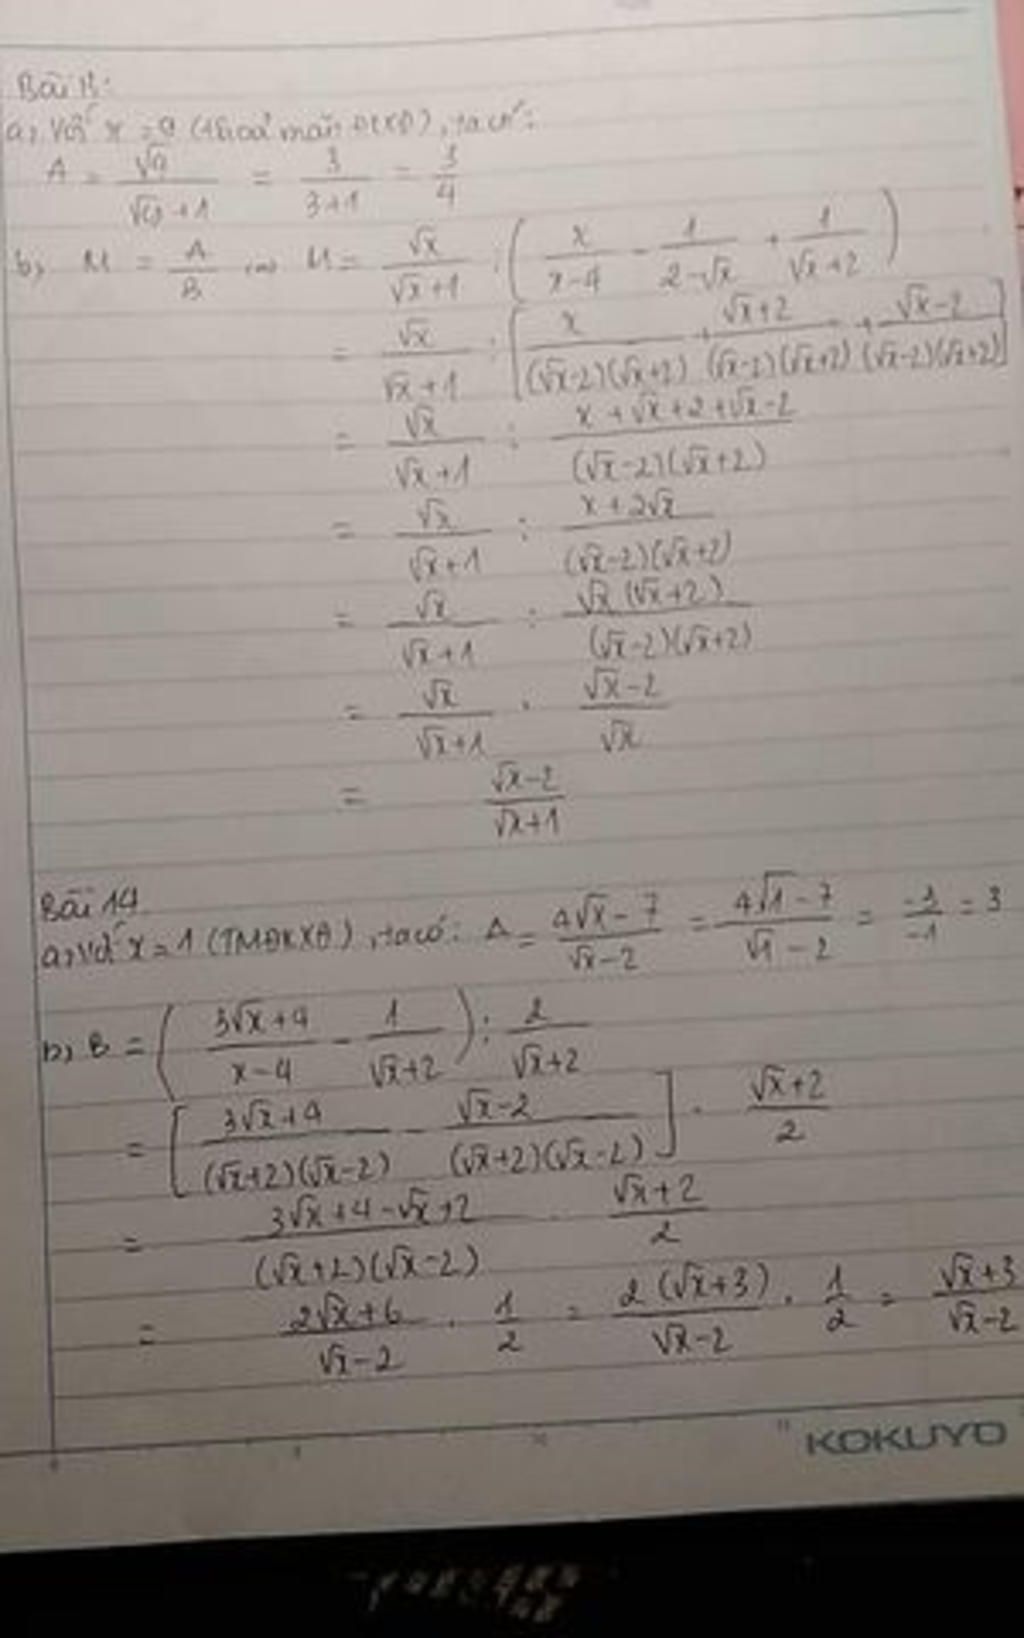 Bài 13:
a, Với x = 9 (thoả mãn ĐKXĐ), ta có:
A = √9/(√9 + 1) = 3/(3+1) = 3/4
b, M = A/B M = √x/(√x+1) : (x/(x-4) - 1/(2-√x) + 1/(√x+2))
= √x/(√x+1) : [x/((√x-2)(√x+2)) + (√x+2)/((√x-2)(√x+2)) + (√x-2)/((√x-2)(√x+2))]
= √x/(√x+1) : (x+√x+2+√x-2)/((√x-2)(√x+2))
= √x/(√x+1) : (x+2√x)/((√x-2)(√x+2))
= √x/(√x+1) : (√x(√x+2))/((√x-2)(√x+2))
= √x/(√x+1) . (√x-2)/√x
= (√x-2)/(√x+1)
Bài 14
a, Với x = 1 (TMĐKXĐ), ta có: A = (4√x-7)/(√x-2) = (4√1-7)/(√1-2) = -3/-1 = 3
b, B = ((3√x+4)/(x-4) - 1/(√x+2)) : 2/(√x+2)
= [(3√x+4)/((√x+2)(√x-2)) - (√x-2)/((√x+2)(√x-2))] . (√x+2)/2
= (3√x+4-√x+2)/((√x+2)(√x-2)) . (√x+2)/2
= (2√x+6)/(√x-2) . 1/2 = (2(√x+3))/(√x-2) . 1/2 = (√x+3)/(√x-2)
KOKUYO